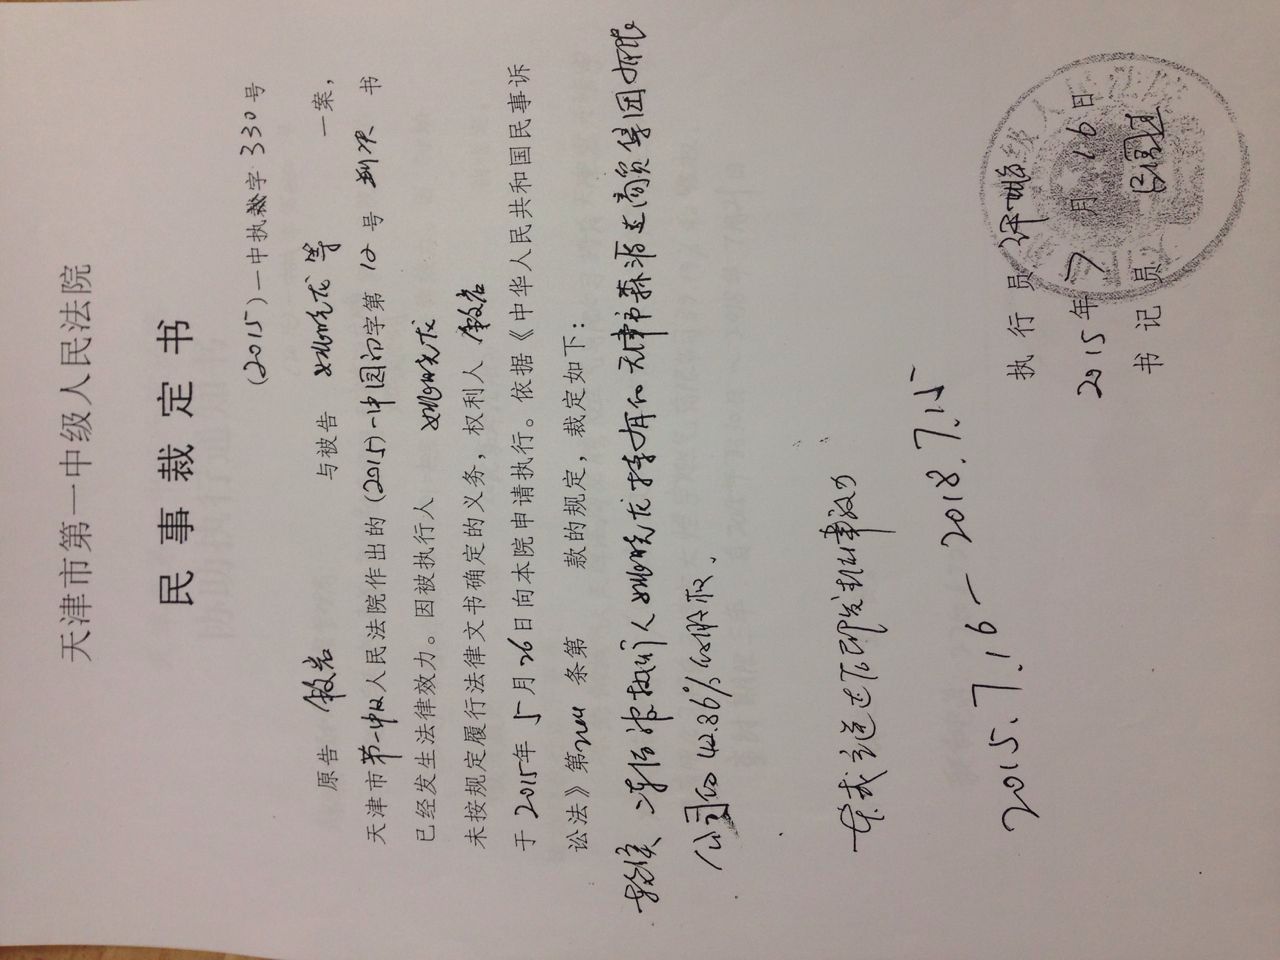 天津市第一中级人民法院
民事裁定书
(2015)一中执裁字330号
原告 敖岩 与被告 姚晓龙等 一案，
天津市第一中级人民法院作出的(2015)一中国初字第12号判决书
已经发生法律效力。因被执行人 姚晓龙
未按规定履行法律文书确定的义务，权利人 敖岩
于2015年5月26日向本院申请执行。依据《中华人民共和国民事诉
讼法》第244条第 款的规定，裁定如下：
轮候冻结被执行人姚晓龙持有的天津市森源达商贸集团有限
公司的42.86%的股权。
本裁定送达后即发生法律效力
2015.7.16-2018.7.15
执行员
2015年7月16日
书记员